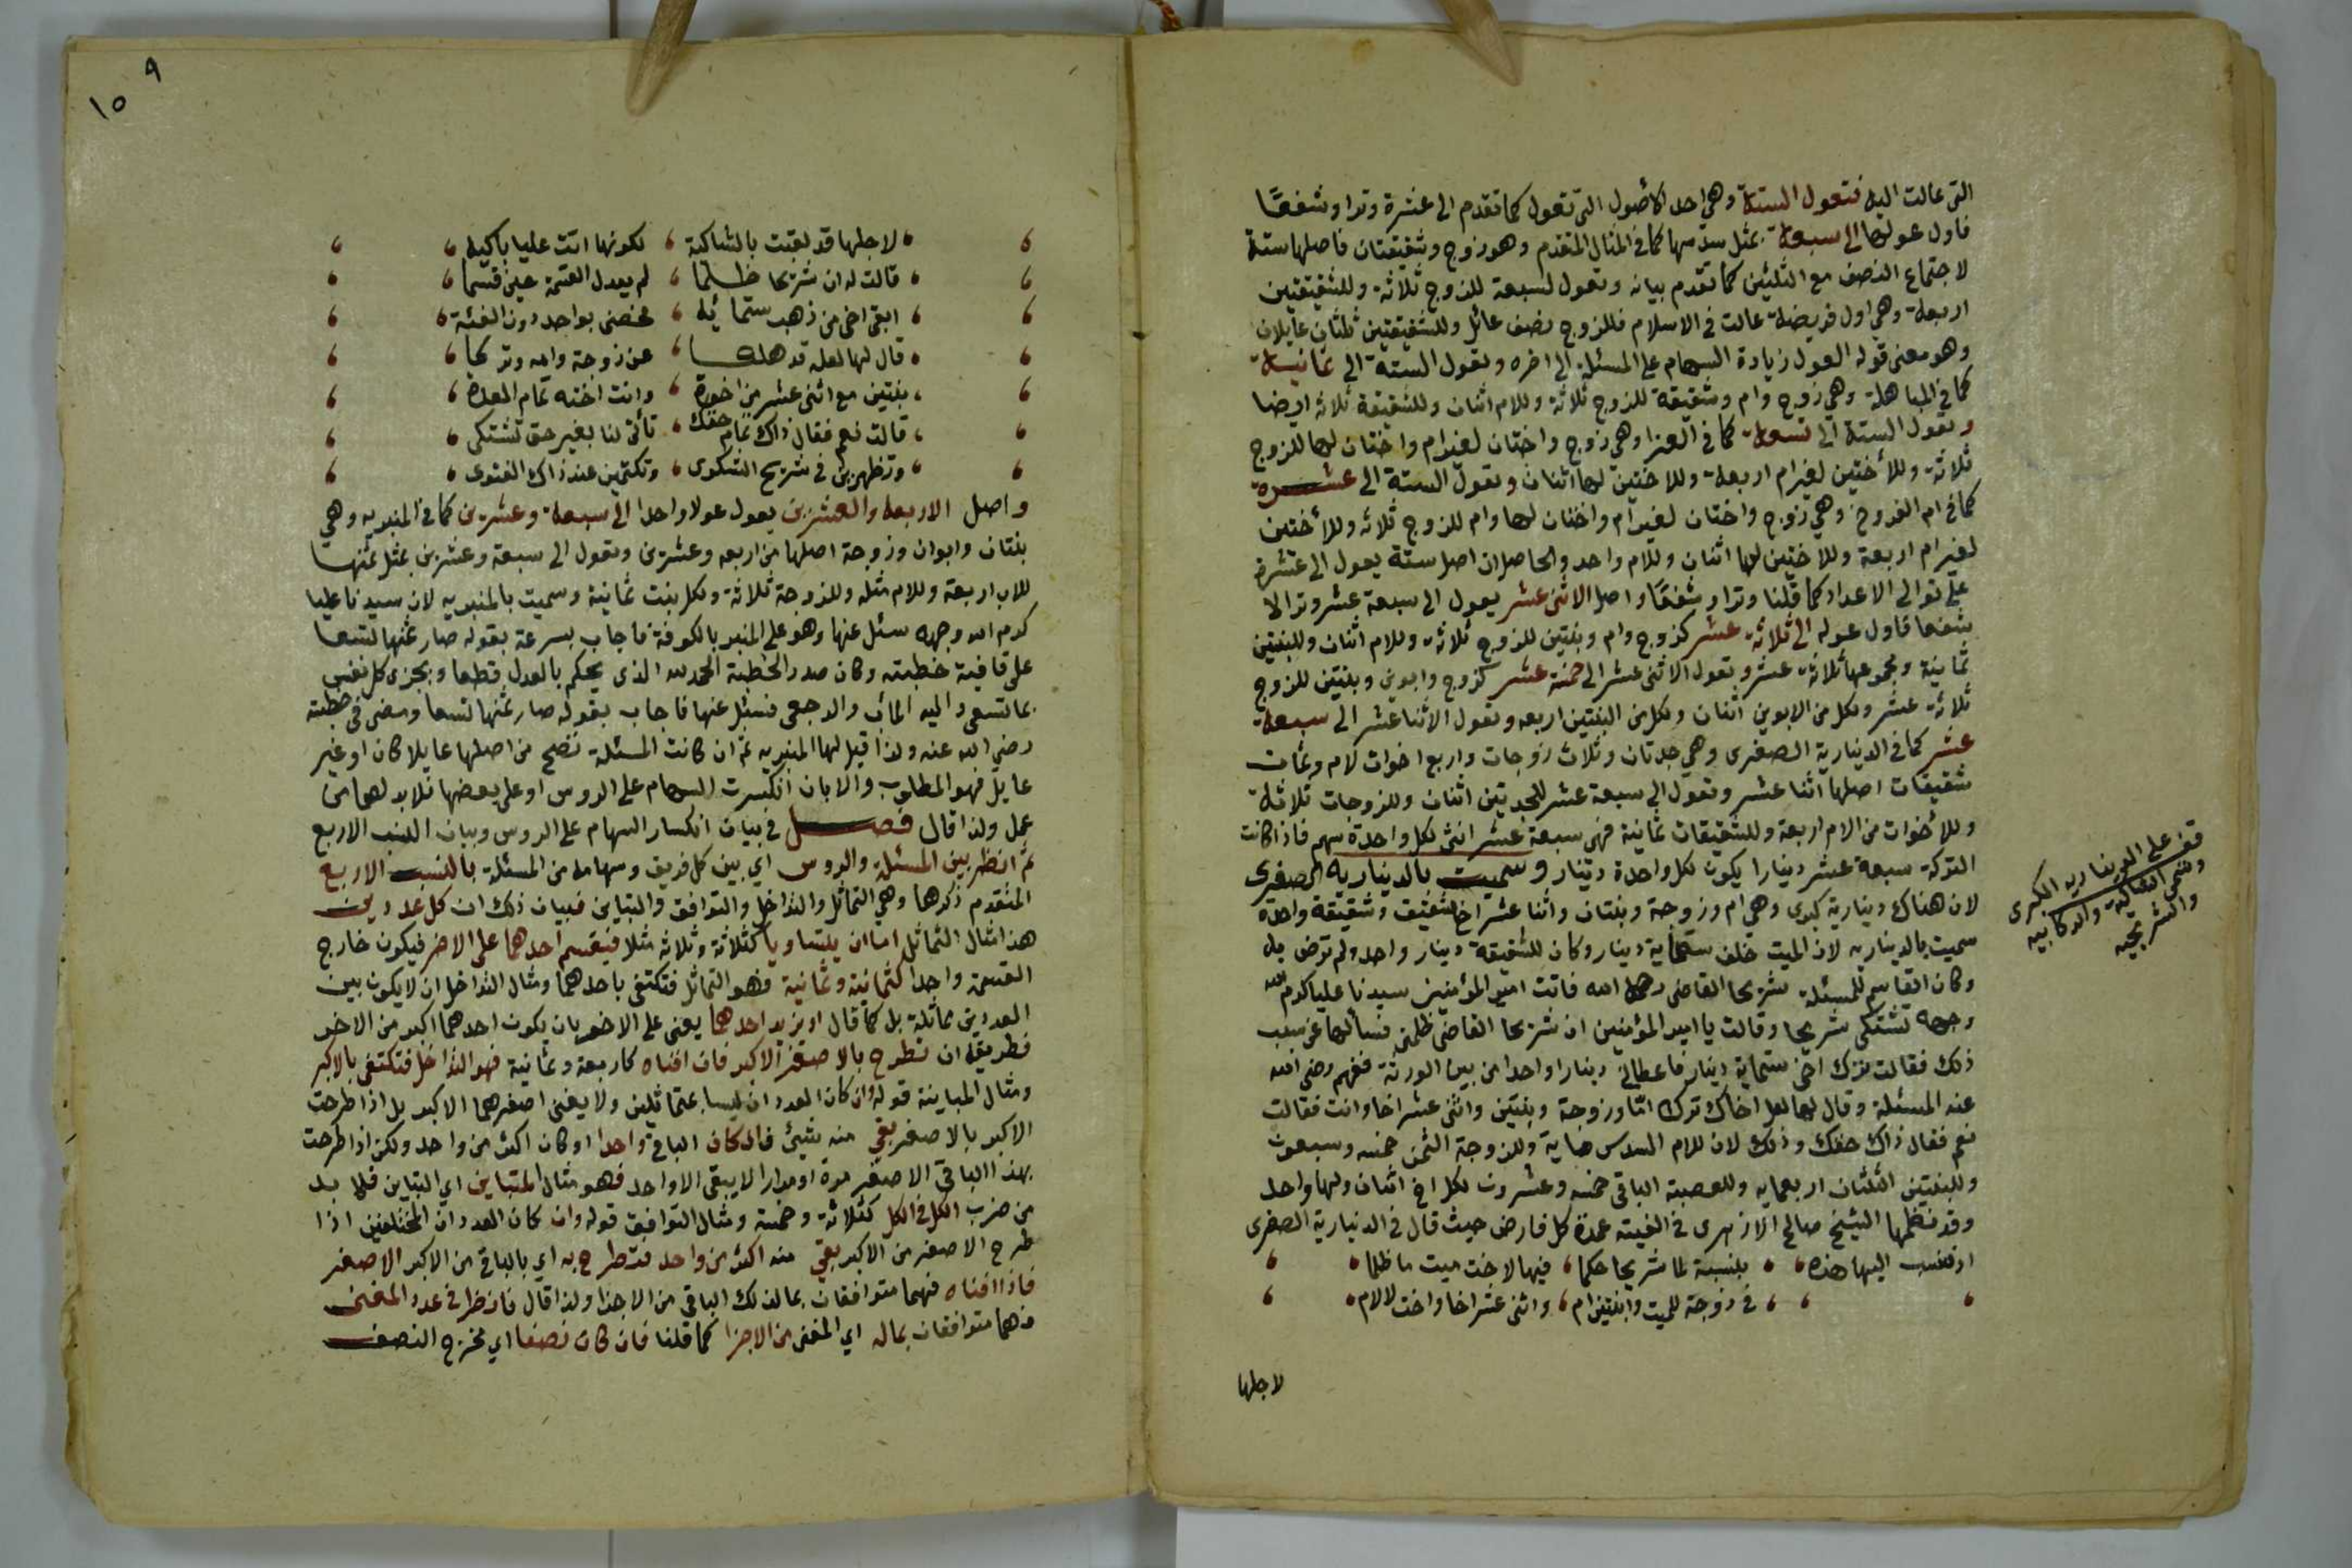 التى عالت اليه فتعول الستة وهي احد الأصول التى تعول كما تقدم الى عشرة وترا وشفعًا
فاول عولها الى سبعة بمثل سدسها كما في المثال المتقدم وهو زوج وشقيقتان فاصلها ستة
لاجتماع النصف مع الثلثين كما تقدم بيانه وتعول لسبعة للزوج ثلاثة وللشقيقتين
اربعة وهي اول فريضة عالت في الاسلام فللزوج نصف عائل وللشقيقتين ثلثان عايلان
وهو معنى قوله العول زيادة السهام على المسئلة الى اخره وتعول الستة الى ثمانية
كما في المباهلة وهي زوج وام وشقيقة للزوج ثلاثة وللام اثنان وللشقيقة ثلاثة ايضا
وتعول الستة الى تسعة كما في الغرا وهي زوج واختان لغيرام واختان لها للزوج
ثلاثة وللأختين لغيرام اربعة وللاختين لها اثنان وتعول الستة الى عشرة
كما في ام الفروخ وهي زوج واختان لغيرام واختان لها وام للزوج ثلاثه وللأختين
لغيرام اربعة وللاختين لها اثنان وللام واحد والحاصل ان اصل ستة يعول الى عشرة
على توالى الاعداد كما قلنا وترا وشفعًا واصل الاثنى عشر يعول الى سبعة عشر وترا لا
شفعا فاول عوله الى ثلاثة عشر كزوج وام وبنتين للزوج ثلاثة وللام اثنان وللبنتين
ثمانية ومجموعها ثلاثة عشر وتعول الاثنى عشر الى خمسة عشر كزوج وابوين وبنتين للزوج
ثلاثة عشر ولكل من الابوين اثنان ولكل من البنتين اربعه وتعول الاثنا عشر الى سبعة
عشر كما في الدينارية الصغرى وهي جدتان وثلاث زوجات واربع اخوات لام وثمان
شقيقات اصلها اثنا عشر وتعول الى سبعة عشر للجدتين اثنان وللزوجات ثلاثة
وللأخوات من الام اربعة وللشقيقات ثمانية فهى سبعة عشر انثى لكل واحدة سهم فاذا كانت
التركة سبعة عشر دينارا يكون لكل واحدة دينار وسميت بالديناريه الصغرى
لان هناك دينارية كبرى وهي ام وزوجة وبنتان واثنا عشر اخا لشقيق وشقيقة واحدة
سميت بالديناريه لان الميت خلف ستماية دينار وكان للشقيقة دينار واحد ولم ترض به
وكان القاسم للمسئلة شريحا القاضى رحمه الله فاتت امير المؤمنين سيدنا عليا كرم الله
وجهه تشتكى شريحا وقالت يا امير المؤمنين ان شريحا القاضى ظلمنى فسألها عن سبب
ذلك فقالت ترك اخى ستماية دينار فاعطانى دينارا واحدا من بين الورثة ففهم رضى الله
عنه المسئلة وقال لها لعل اخاك ترك امّا وزوجة وبنتين واثنى عشر اخا وانت فقالت
نعم فقال ذاك حقك وذلك لان للام السدس ماية وللزوجة الثمن خمسه وسبعون
وللبنتين الثلثان اربعمايه وللعصبة الباقى خمسه وعشرون لكل اخ اثنان ولها واحد
وقد نظمها الشيخ صالح الازهرى في الفيته عمدة كل فارض حيث قال في الدنيارية الصغرى
اذ تنسب اليها هذه ، بنسبة لما شريحا حكما ، فيها لاخت ميت ما ظلما
في زوجة للميت وابنتين ام ، واثنى عشر اخا واخت لا لام
لاجلها
قف على الديناريه الكبرى
وتسمى العامرية والركابيه
والشريحيه
٩
١٥
لاجلها قد لقبت بالشاكية ، لكونها اتت عليا باكيه
قالت له ان شريحا ظلما ، لم يعدل القسمة حين قسما
ابقى اخى من ذهب ستمائيه ، خصنى بواحد دون الفئة
قال لها لعله قد هلك ، عن زوجة وامه وتركا
بنتين مع اثنى عشر من اخوة ، وانت اخته تمام العدة
قالت نعم فقال ذاك تمام حقك ، تأتى لنا بغير حق تشتكى
وتظهرين في شريح الشكوى ، وتكتمين عند ذاك الفتوى
واصل الاربعة والعشرين يعول عولا واحدا الى سبعة وعشرين كما في المنبريه وهي
بنتان وابوان وزوجة اصلها من اربعه وعشرين وتعول الى سبعة وعشرين بمثل ثمنها
للاب اربعة وللام مثله وللزوجة ثلاثة ولكل بنت ثمانية وسميت بالمنبريه لان سيدنا عليا
كرم الله وجهه سئل عنها وهو على المنبر بالكوفة فاجاب بسرعة بقوله صار ثمنها تسعا
على قافية خطبته وكان صدر الخطبة الحمد لله الذى يحكم بالعدل قطعا ويجزى كل نفس
بما تسعى واليه المآب والرجعى فسئل عنها فاجاب بقوله صار ثمنها تسعا ومضى في خطبته
رضى الله عنه ولذا قيل لها المنبريه ثم ان كانت المسئلة تصح من اصلها عايلا كان او غير
عايل فهو المطلوب والا بان انكسرت السهام على الروس او على بعضها فلا بد لها من
عمل ولذا قال فصل في بيان انكسار السهام على الروس وبيان النسب الاربع
ثم انظر بين المسئلة والروس اي بين كل فريق وسهامه من المسئلة بالنسب الاربع
المتقدم ذكرها وهي التماثل والتداخل والتوافق والتباين فبيان ذلك ان كل عددين
هذا مثال التماثل اما ان يتساويا كثلاثة وثلاثة مثلا فينقسم احدهما على الاخر فيكون خارج
القسمة واحدا كثمانية وثمانية فهو التماثل فتكتفى باحدهما ومثال التداخل ان لا يكون بين
العددين مماثلة بل كما قال او يزيد احدهما يعنى على الاخر بان يكون احدهما اكبر من الاخر
فطريقه ان تطرح بالاصغر الاكبر فان افناه كاربعة وثمانية فهو التداخل فتكتفى بالاكبر
ومثال المباينة قوله وان كان العددان ليسا بمتماثلين ولا يفنى اصغرهما الاكبر بل اذا طرحت
الاكبر بالاصغر بقي منه شيئ فان كان الباقى واحدا او كان اكثر من واحد ولكن اذا طرحت
بهذا الباقي الاصغر مرة او مرارا لا يبقى الا واحد فهو مثال المتباين اي التباين فلا بد
من ضرب الكل في الكل كثلاثة وخمسة ومثال التوافق قوله وان كان العددان المختلفين اذا
طرح الاصغر من الاكبر بقي منه اكثر من واحد فتطرح به اي بالباقى من الاكبر الاصغر
فاذا افناه فهما متوافقان بما لذلك الباقى من الاجزا ولذا قال فانظر في عدد المفنى
فهما متوافقان بماله اي المفنى من الاجزا كما قلنا فان كان نصفا اي مخرج النصف